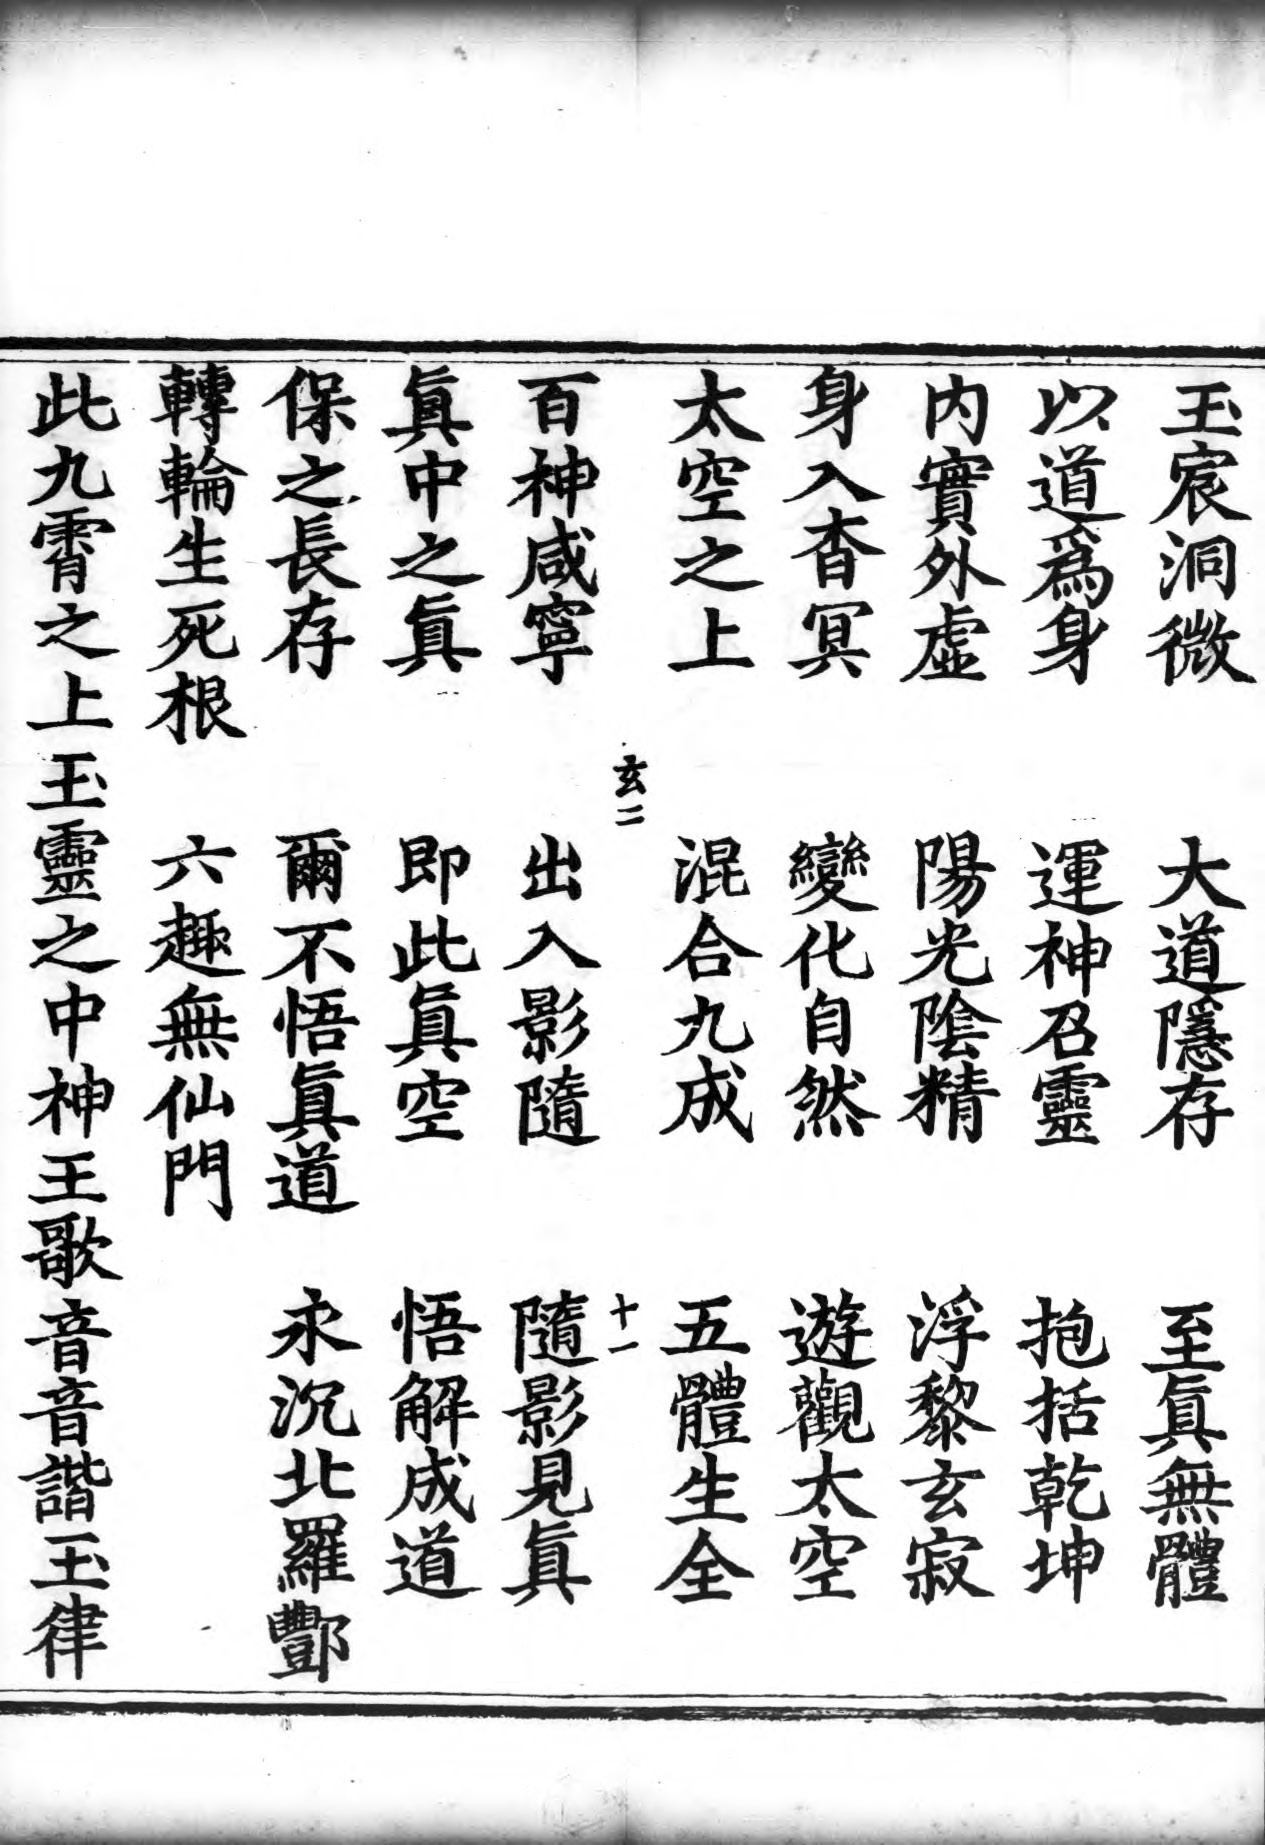 玉宸洞微　大道隱存　至眞無體
以道爲身　運神召靈　抱括乾坤
内實外虛　陽光陰精　浮黎玄寂
身入杳冥　變化自然　遊觀太空
太空之上　混合九成　五體生全
玄二　十一
百神咸寧　出入影隨　隨影見眞
眞中之眞　即此眞空　悟解成道
保之長存　爾不悟眞道　永沉北羅酆
轉輪生死根　六趣無仙門
此九霄之上玉靈之中神王歌音音諧玉律